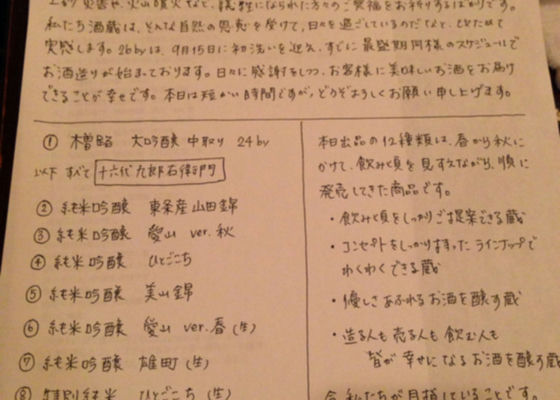 災害や、火山噴火など、犠牲になられた方々のご冥福をお祈りするばかりです。
私たち酒蔵は、そんな自然の恩恵を受けて、日々を過ごしているのだなと、しみじみ
実感します。26byは、9月15日に初洗いを迎え、すでに最盛期同様のスケジュールで
お酒造りが始まっております。日々に感謝をしつつ、お客様に美味しいお酒をお届け
できることが幸せです。本日は短かい時間ですが、どうぞよろしくお願い申し上げます。
① 木曽路 大吟醸 中取り 24by
以下 すべて 十六代九郎右衛門
② 純米吟醸 東条産山田錦
③ 純米吟醸 愛山 ver.秋
④ 純米吟醸 ひとごこち
⑤ 純米吟醸 美山錦
⑥ 純米吟醸 愛山 ver.春 (生)
⑦ 純米吟醸 雄町 (生)
⑧ 特別純米 ひとごこち (生)
本日出品の12種類は、春から秋に
かけて、飲み頃を見すえながら、順に
発売してきた商品です。
・飲み頃をしっかりご提案できる蔵
・コンセプトをしっかりもった ラインナップで
わくわくできる蔵
・優しさあふれるお酒を醸す蔵
・造る人も売る人も飲む人も
皆が幸せになるお酒を醸す蔵
今私たちが目指していることです。